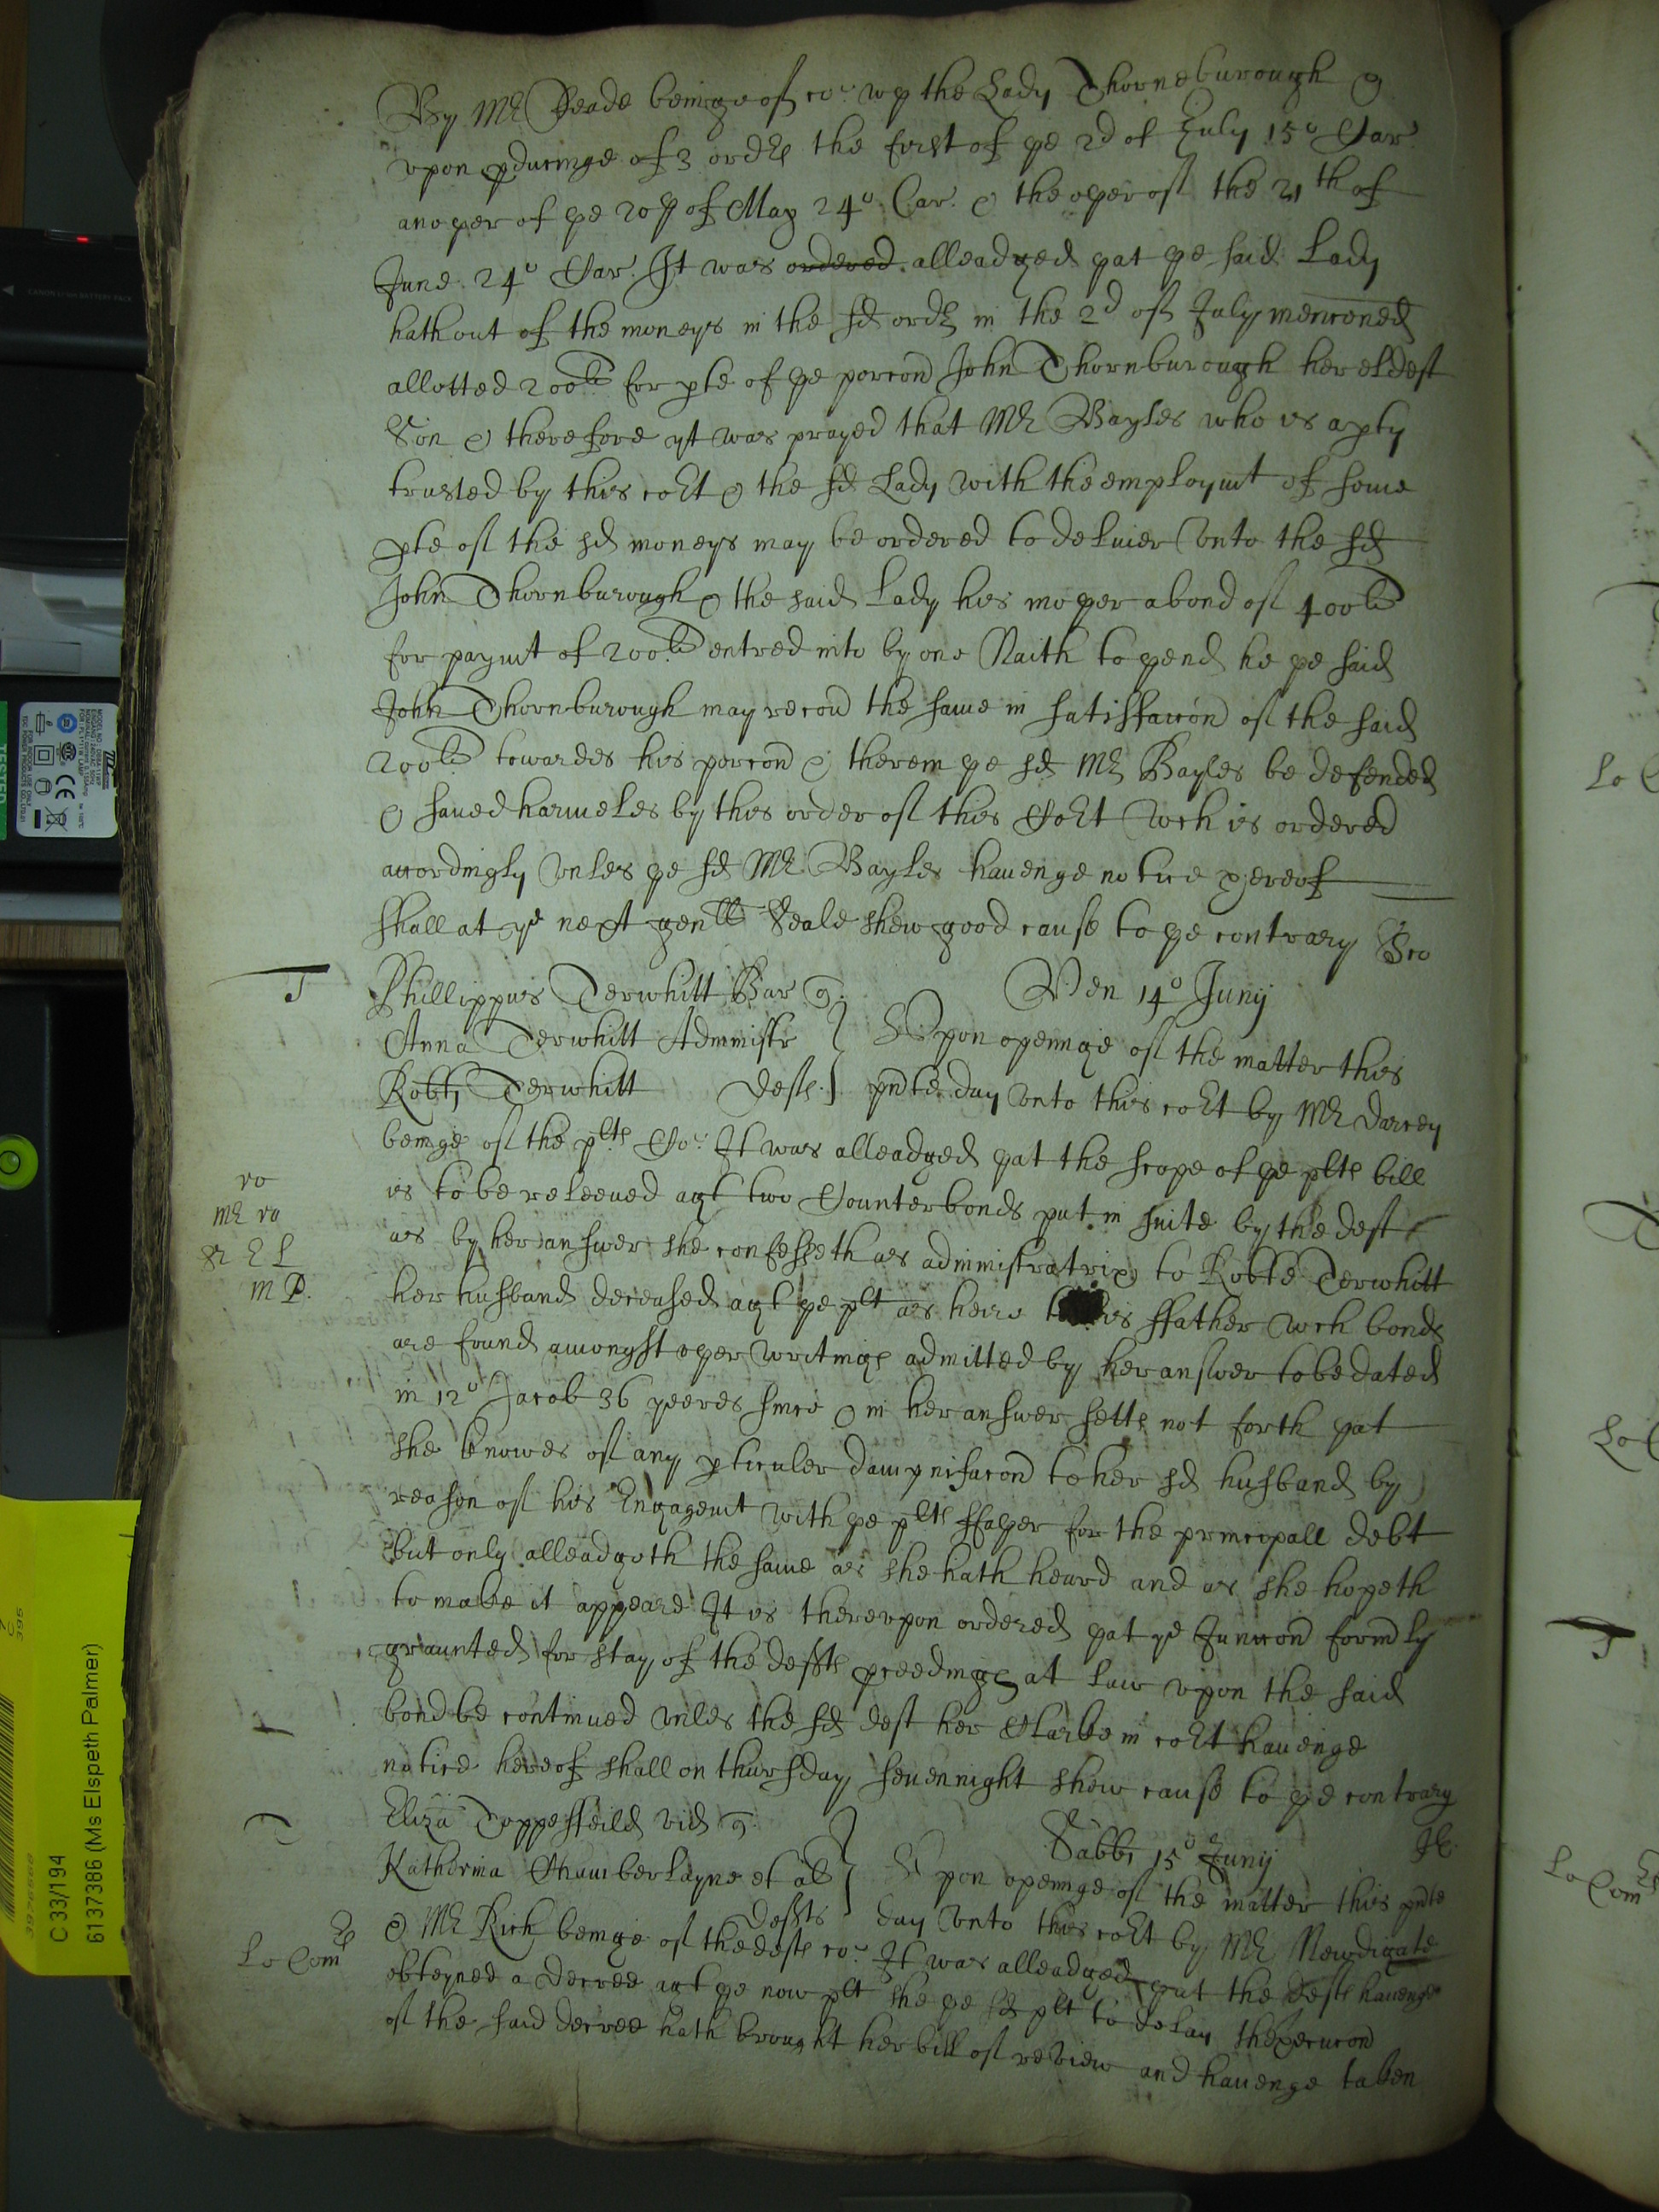 By Mr Reade beinge of co: wth the Lady Thorneburough &
vpon pducinge of 3 ordrs the first of ye 2d of July 15o Car
anoyer of ye 20th of May 24o Car. & the oyer of the 21th of
June 24o Car. It was ordered alleadged yat ye said Lady
hath out of the moneys in the sd ordr in the 2d of July menconed
allotted 200li for pte of ye porcon John Thornburough her eldest
Son & therefore yt was prayed that Mr Bayles who is a pty
trusted by this cort & the sd Lady with the employmt of some
pte of the sd moneys may be ordered to deliuer vnto the sd
John Thornburough & the said Lady his moyer a bond of 400li
for paymt of 200li entred into by one Naith to yend he ye said
John Thornburough may recou the same in satisfaccon of the said
200li towardes his porcon & therein ye sd Mr Bayles be defended
& saued harmeles by this order of this Cort wch is ordered
accordingly vnles ye sd Mr Bayles hauenge notice yereof
shall at ye next genll Seale shew good cause to ye contrary
T
Phillippus Terwhitt Bar q
Ven 14o Junij
Anna Terwhitt Administr
Vpon openinge of the matter this
Robti Terwhitt deft
pnte day vnto this cort by Mr Darcey
beinge of the plts Co: It was alleadged yat the scope of ye plts bill
is to be releeued agt two Counterbonds put in suite by the deft
as by her answer she confesseth as administratrix to Robte Terwhitt
her husband deceased agt ye plt as heire to his ffather wch bonds
are found amongst oyer writings admitted by her answer to be dated
in 12o Jacob 36 yeeres since & in her answer setts not forth yat
she knowes of any pticuler dampnifacon to her sd husband by
reason of his Engagemt with ye plts ffayer for the principall debt
but only alleadgeth the same as she hath heard and as she hopeth
to make it appeare It is therevpon ordered yat ye Junccon formrly
graunted for stay of the defts pceedings at law vpon the said
bond be continued vnles the sd deft her Clarke in cort hauenge
notice hereof shall on thursday seuennight shew cause to ye contrary
T
Eliza Toppesfeild vid q
Sabbi 15o Junij
Katherina Chamberlayne et al
Vpon openinge of the matter this pnte
defts day vnto this cort by Mr Newdigate
Lo Comrs
& Mr Rich beinge of the defts co: It was alleadged yat the defts hauenge
obteyned a decree agt ye now plt she ye sd plt to delay thexecucon
of the said decree hath brought her bill of reView and hauenge taken
C 33/194
6137386 (Ms Elspeth Palmer)
CANON LI-ION BATTERY PACK
TESTED